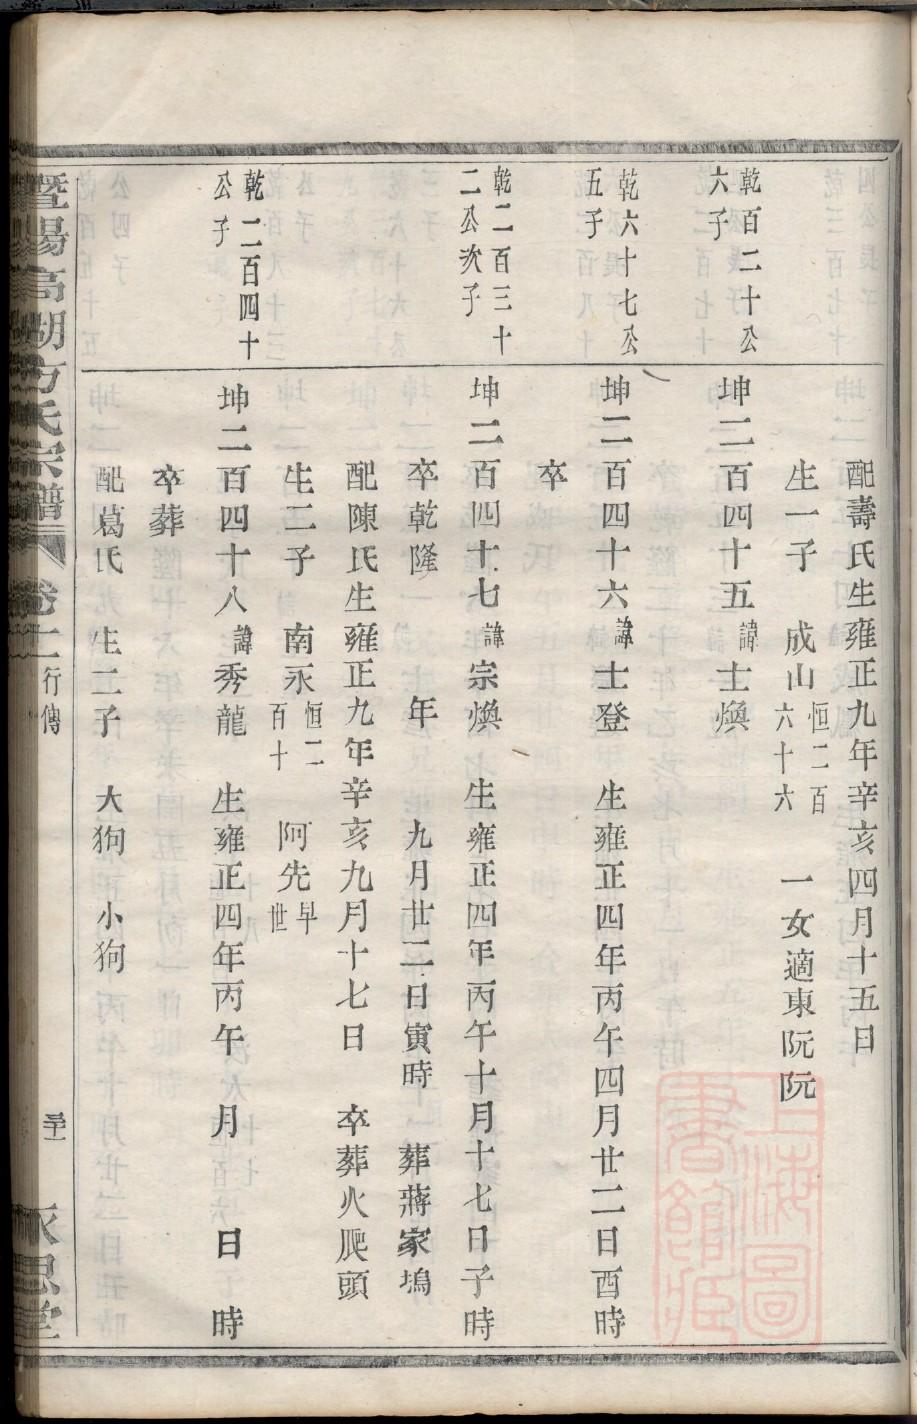 配壽氏生雍正九年辛亥四月十五日
生一子 成山恒二百六十六 一女適東阮阮
乾百二十公六子
坤二百四十五諱士煥
乾六十七公五子
坤二百四十六諱士登 生雍正四年丙午四月廿二日酉時
卒
乾二百三十二公次子
坤二百四十七諱宗煥 生雍正四年丙午十月十七日子時
卒乾隆 年 九月廿二日寅時 葬蔣家塢
配陳氏生雍正九年辛亥九月十七日 卒葬火爬頭
生二子 南永恒二百十 阿先早世
乾二百四十公子
坤二百四十八諱秀龍 生雍正四年丙午 月 日 時
卒葬
配葛氏 生二子 大狗 小狗
暨陽高湖方氏宗譜 卷十二 行傳 永思堂
上海圖書館藏